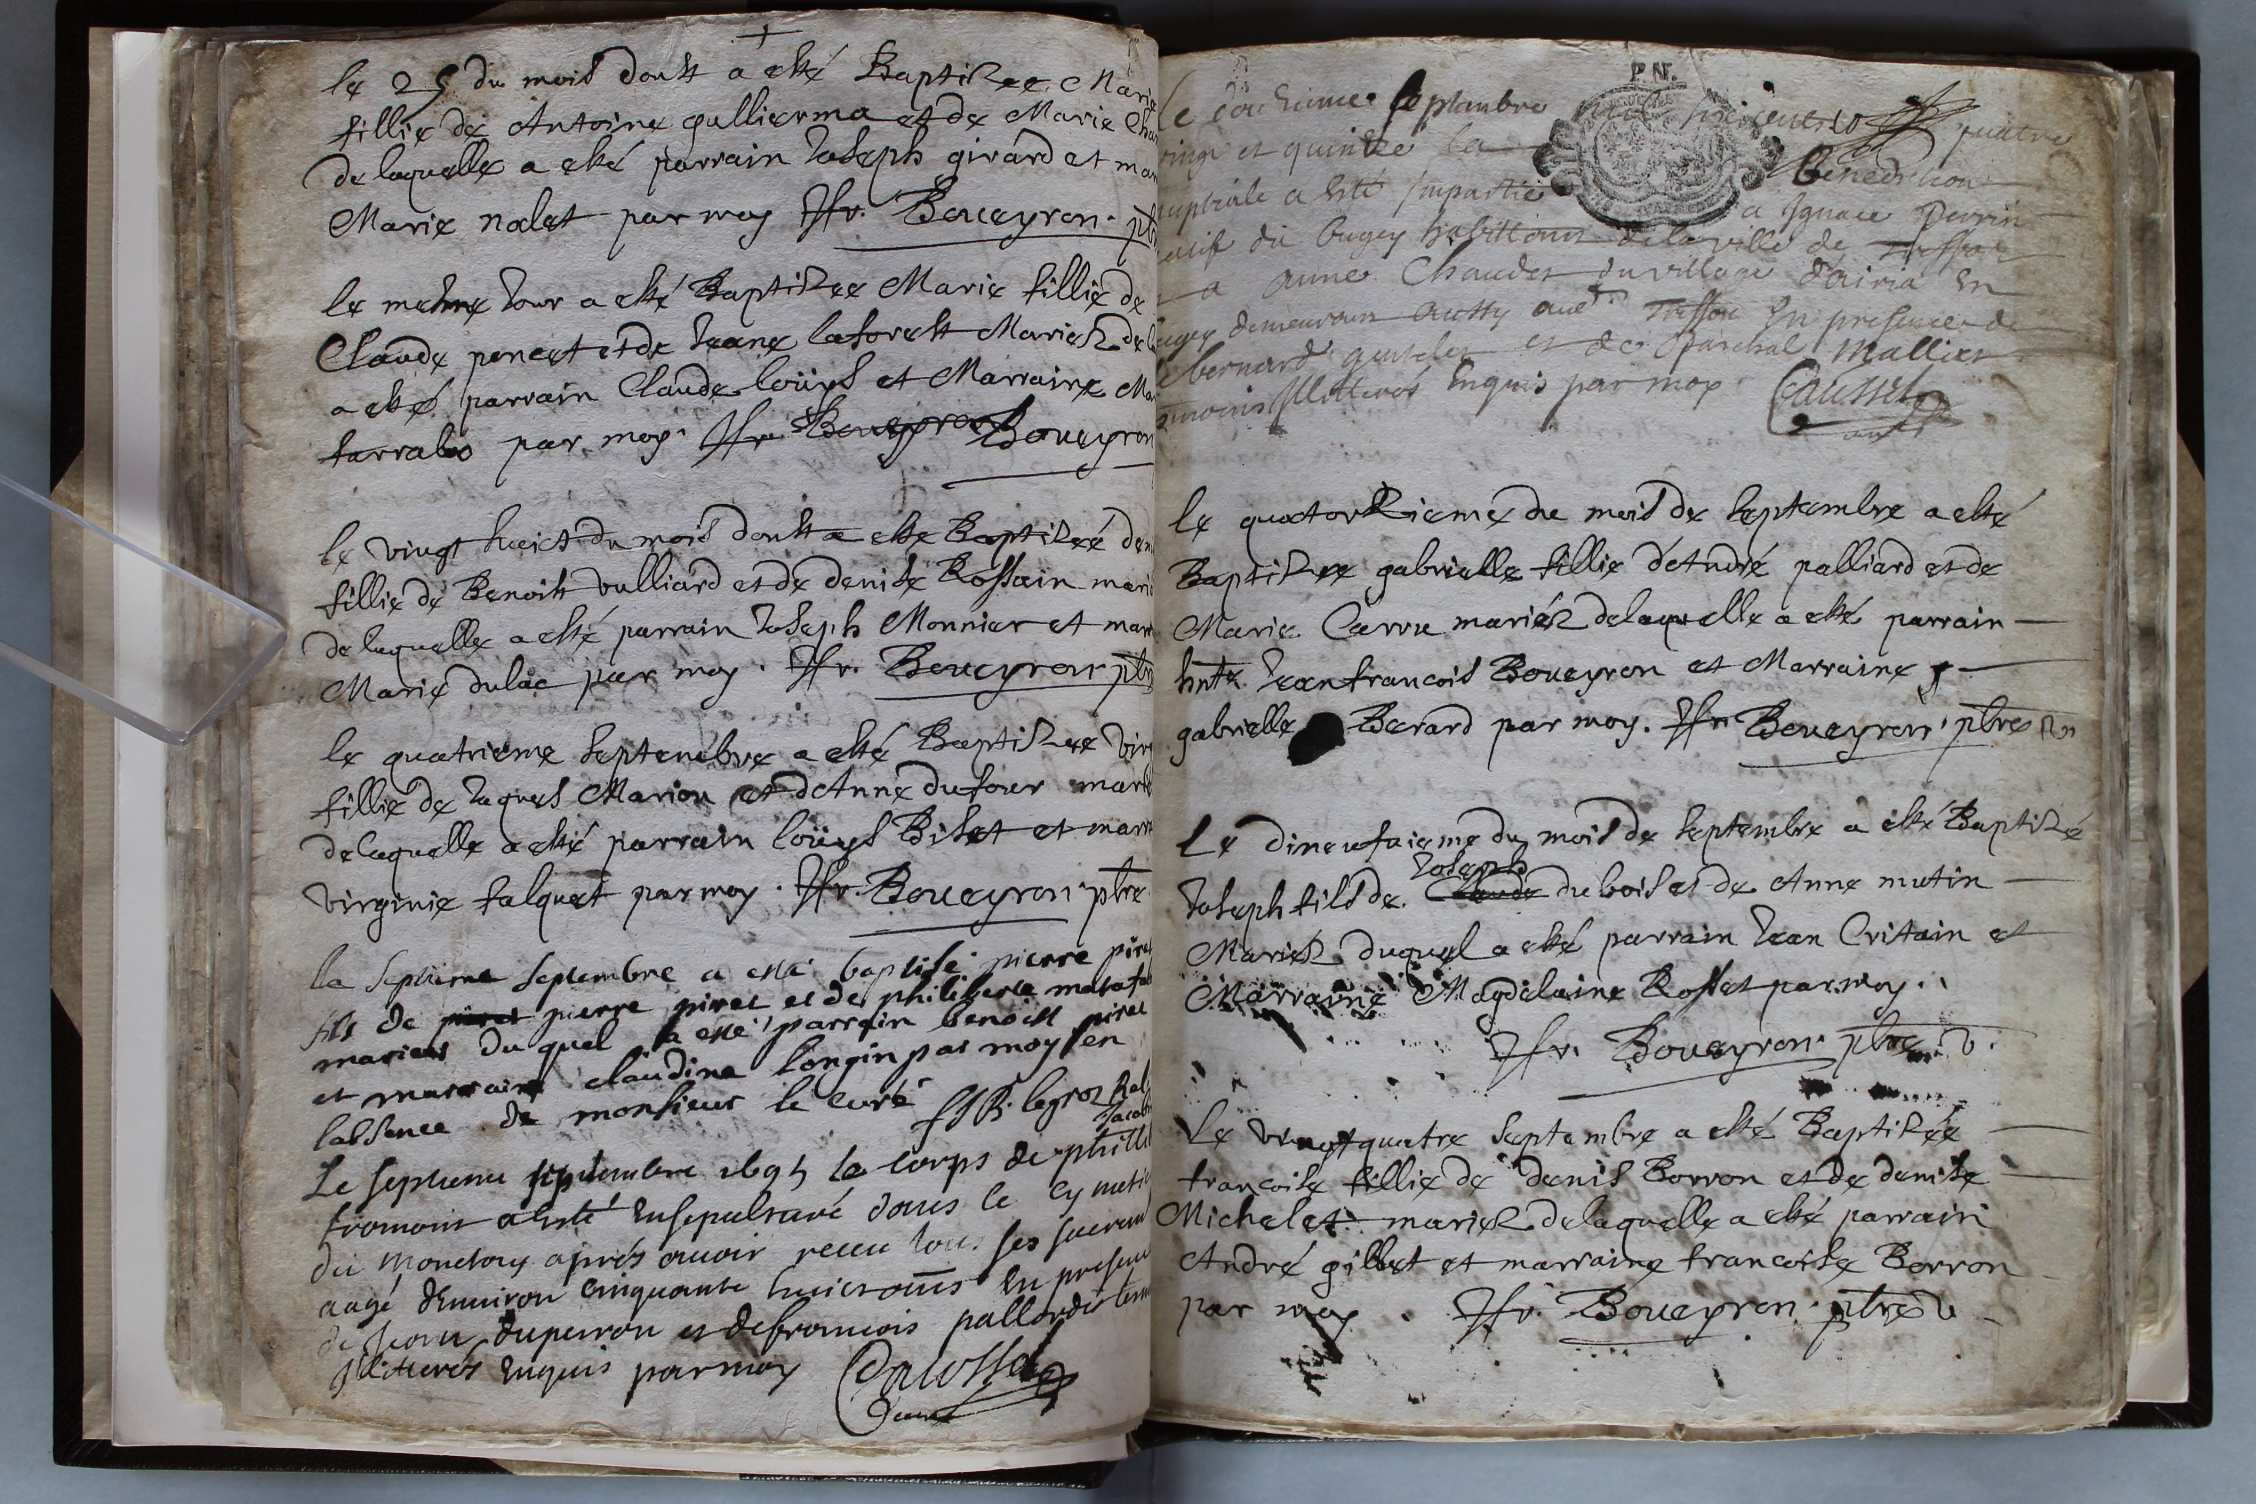 le 25 du mois doust a esté Baptizee Marie
fillie de Antoine gullierma et de Marie
de laquelle a esté parrain Joseph girard et
Marie nalet par moy Jfr. Boueyron. ptre
le mesme Jour a esté Baptizee Marie fillie de
Claude poncet et de Jeane laforest Mariez de
a esté parrain Claude loüys et Marraine
tarrabo par moy. Jfr. Boueyron Boueyron
le vingt huict du mois doust a esté Baptizeé
fillie de Benoist vulliard et de denise Rossain
de laquelle a esté parrain Joseph Monnier et
Marie dulac par moy. Jfr. Boueyron. ptre
le quatrieme septembre a esté Baptizee
fillie de Jaques Marion et dAnne dufour
de laquelle a esté parrain loüys Biset et
virginie falquet par moy. Jfr. Boueyron. ptre
la septieme septembre a esté baptisé pierre
fils de piret pierre piret et de philiberte
mariers du quel a esté parrain benoist piret
et marraine claudine longin par moy en
labsence de monsieur le curé legroz
Jacob
Le septieme septembre 1695 le corps de
fromont a esté ensepulturé dans le
du Monetoy aprés avoir receu tous ses
aagé denuiron cinquante huict ans En
de Jean duperron et de francois
Illiterés Enquis par moy Caussel
Le douzieme septembre mil six cents quatre
vingt et quinze la Benediction
nuptiale a esté Impartie a Ignace Perrin
natif du bugey habittant de la ville de
a anne Chaudet du village dairia en
bugey demeurant aussy En presence de
bernard et de parchal mallier
Illiterés Enquis par moy Caussel
le quatorzieme du mois de septembre a esté
Baptizee gabrielle fillie dAndré palliard et de
Marie Carru mariéz de laquelle a esté parrain
Jean francois Boueyron et Marraine
gabrielle Berard par moy. Jfr. Boueyron. ptre
Le dineufuieme du mois de septembre a ésté Baptizé
Joseph
Joseph fils de Claude dubois et de Anne mutin
Mariez duquel a esté parrain Jean Critain et
Marraine Magdelaine Rosset par moy.
Jfr. Boueyron. ptre v.
Le vingt quatre septembre a esté Baptizée
francoise fillie de denis Borron et de denise
Michelet mariez de laquelle a esté parrain
André gillet et marraine francoise Borron
par moy. Jfr. Boueyron. ptre v